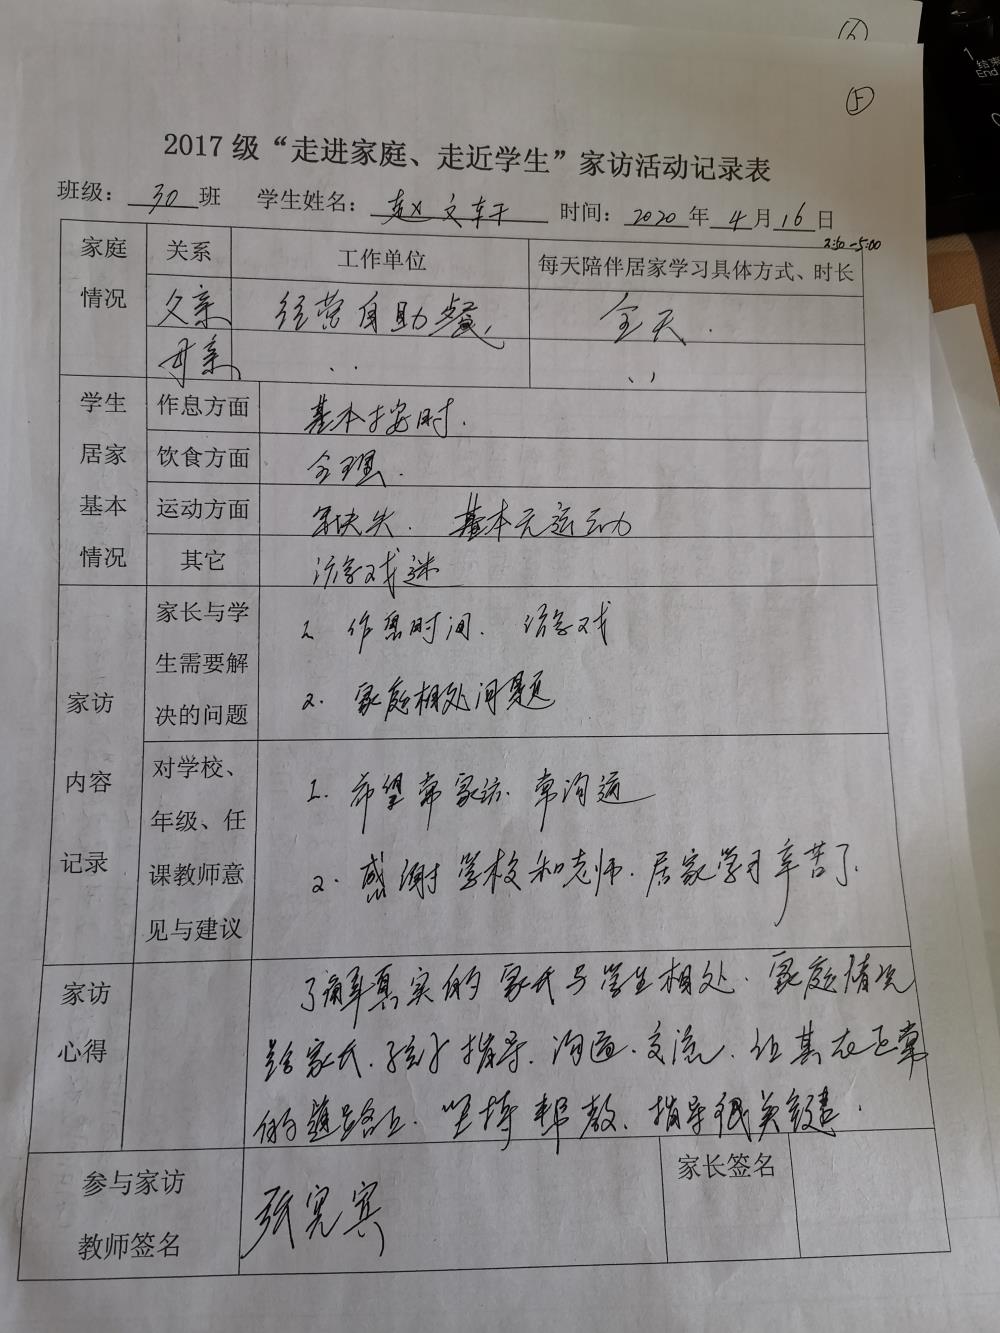 ⑥
1
结束
End
⑤
2017级“走进家庭、走近学生”家访活动记录表
班级: 30 班 学生姓名: 赵文轩 时间: 2020 年 4 月 16 日
3:50-5:00
家庭情况 关系 工作单位 每天陪伴居家学习具体方式、时长
父亲 经营自助餐 全天.
母亲 、、 、、
学生居家基本情况 作息方面 基本按时.
饮食方面 合理.
运动方面 缺失. 基本无运动
其它 游戏迷
家访内容记录 家长与学生需要解决的问题
1. 作息时间. 游戏
2. 家庭相处问题
对学校、年级、任课教师意见与建议
1. 希望常家访. 常沟通
2. 感谢学校和老师. 居家学习辛苦了.
家访心得
了解真实的家长与学生相处. 家庭情况
给家长.孩子指导.沟通.交流.让其在正常
的道路上. 坚持帮教.指导很关键.
参与家访教师签名 张宪宾 家长签名